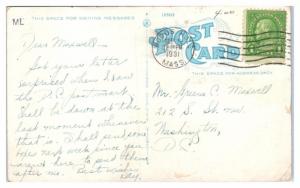 ML
THIS SPACE FOR WRITING MESSAGES
POST CARD
1931
MASS.
THIS SPACE FOR ADDRESS ONLY
Dear Maxwell -
Got your letter
surprised when I saw
the D.C. postmark
Shall be down at the
last moment whenever
that is. Shall send some
one next week since you
aren't here to send them
after me. Best wishes
Mr. C. Maxwell
212 S. St. NW
Washington,
D.C.